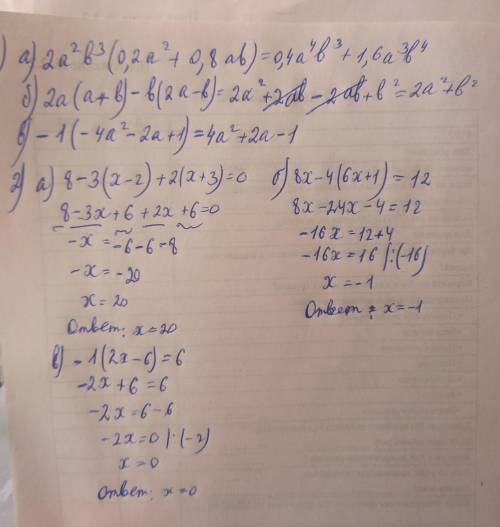 ) а) 2a²b³(0,2a²+0,8ab)=0,4a⁴b³+1,6a³b⁴
б) 2a(a+b)-b(2a-b)=2a²+2ab-2ab+b²=2a²+b²
в) -1(-4a²-2a+1)=4a²+2a-1
2) а) 8-3(x-2)+2(x+3)=0
8-3x+6+2x+6=0
-x=-6-6-8
-x=-20
x=20
Ответ: x=20
б) 8x-4(6x+1)=12
8x-24x-4=12
-16x=12+4
-16x=16 |:(-16)
x=-1
Ответ: x=-1
в) -1(2x-6)=6
-2x+6=6
-2x=6-6
-2x=0 |:(-2)
x=0
Ответ: x=0